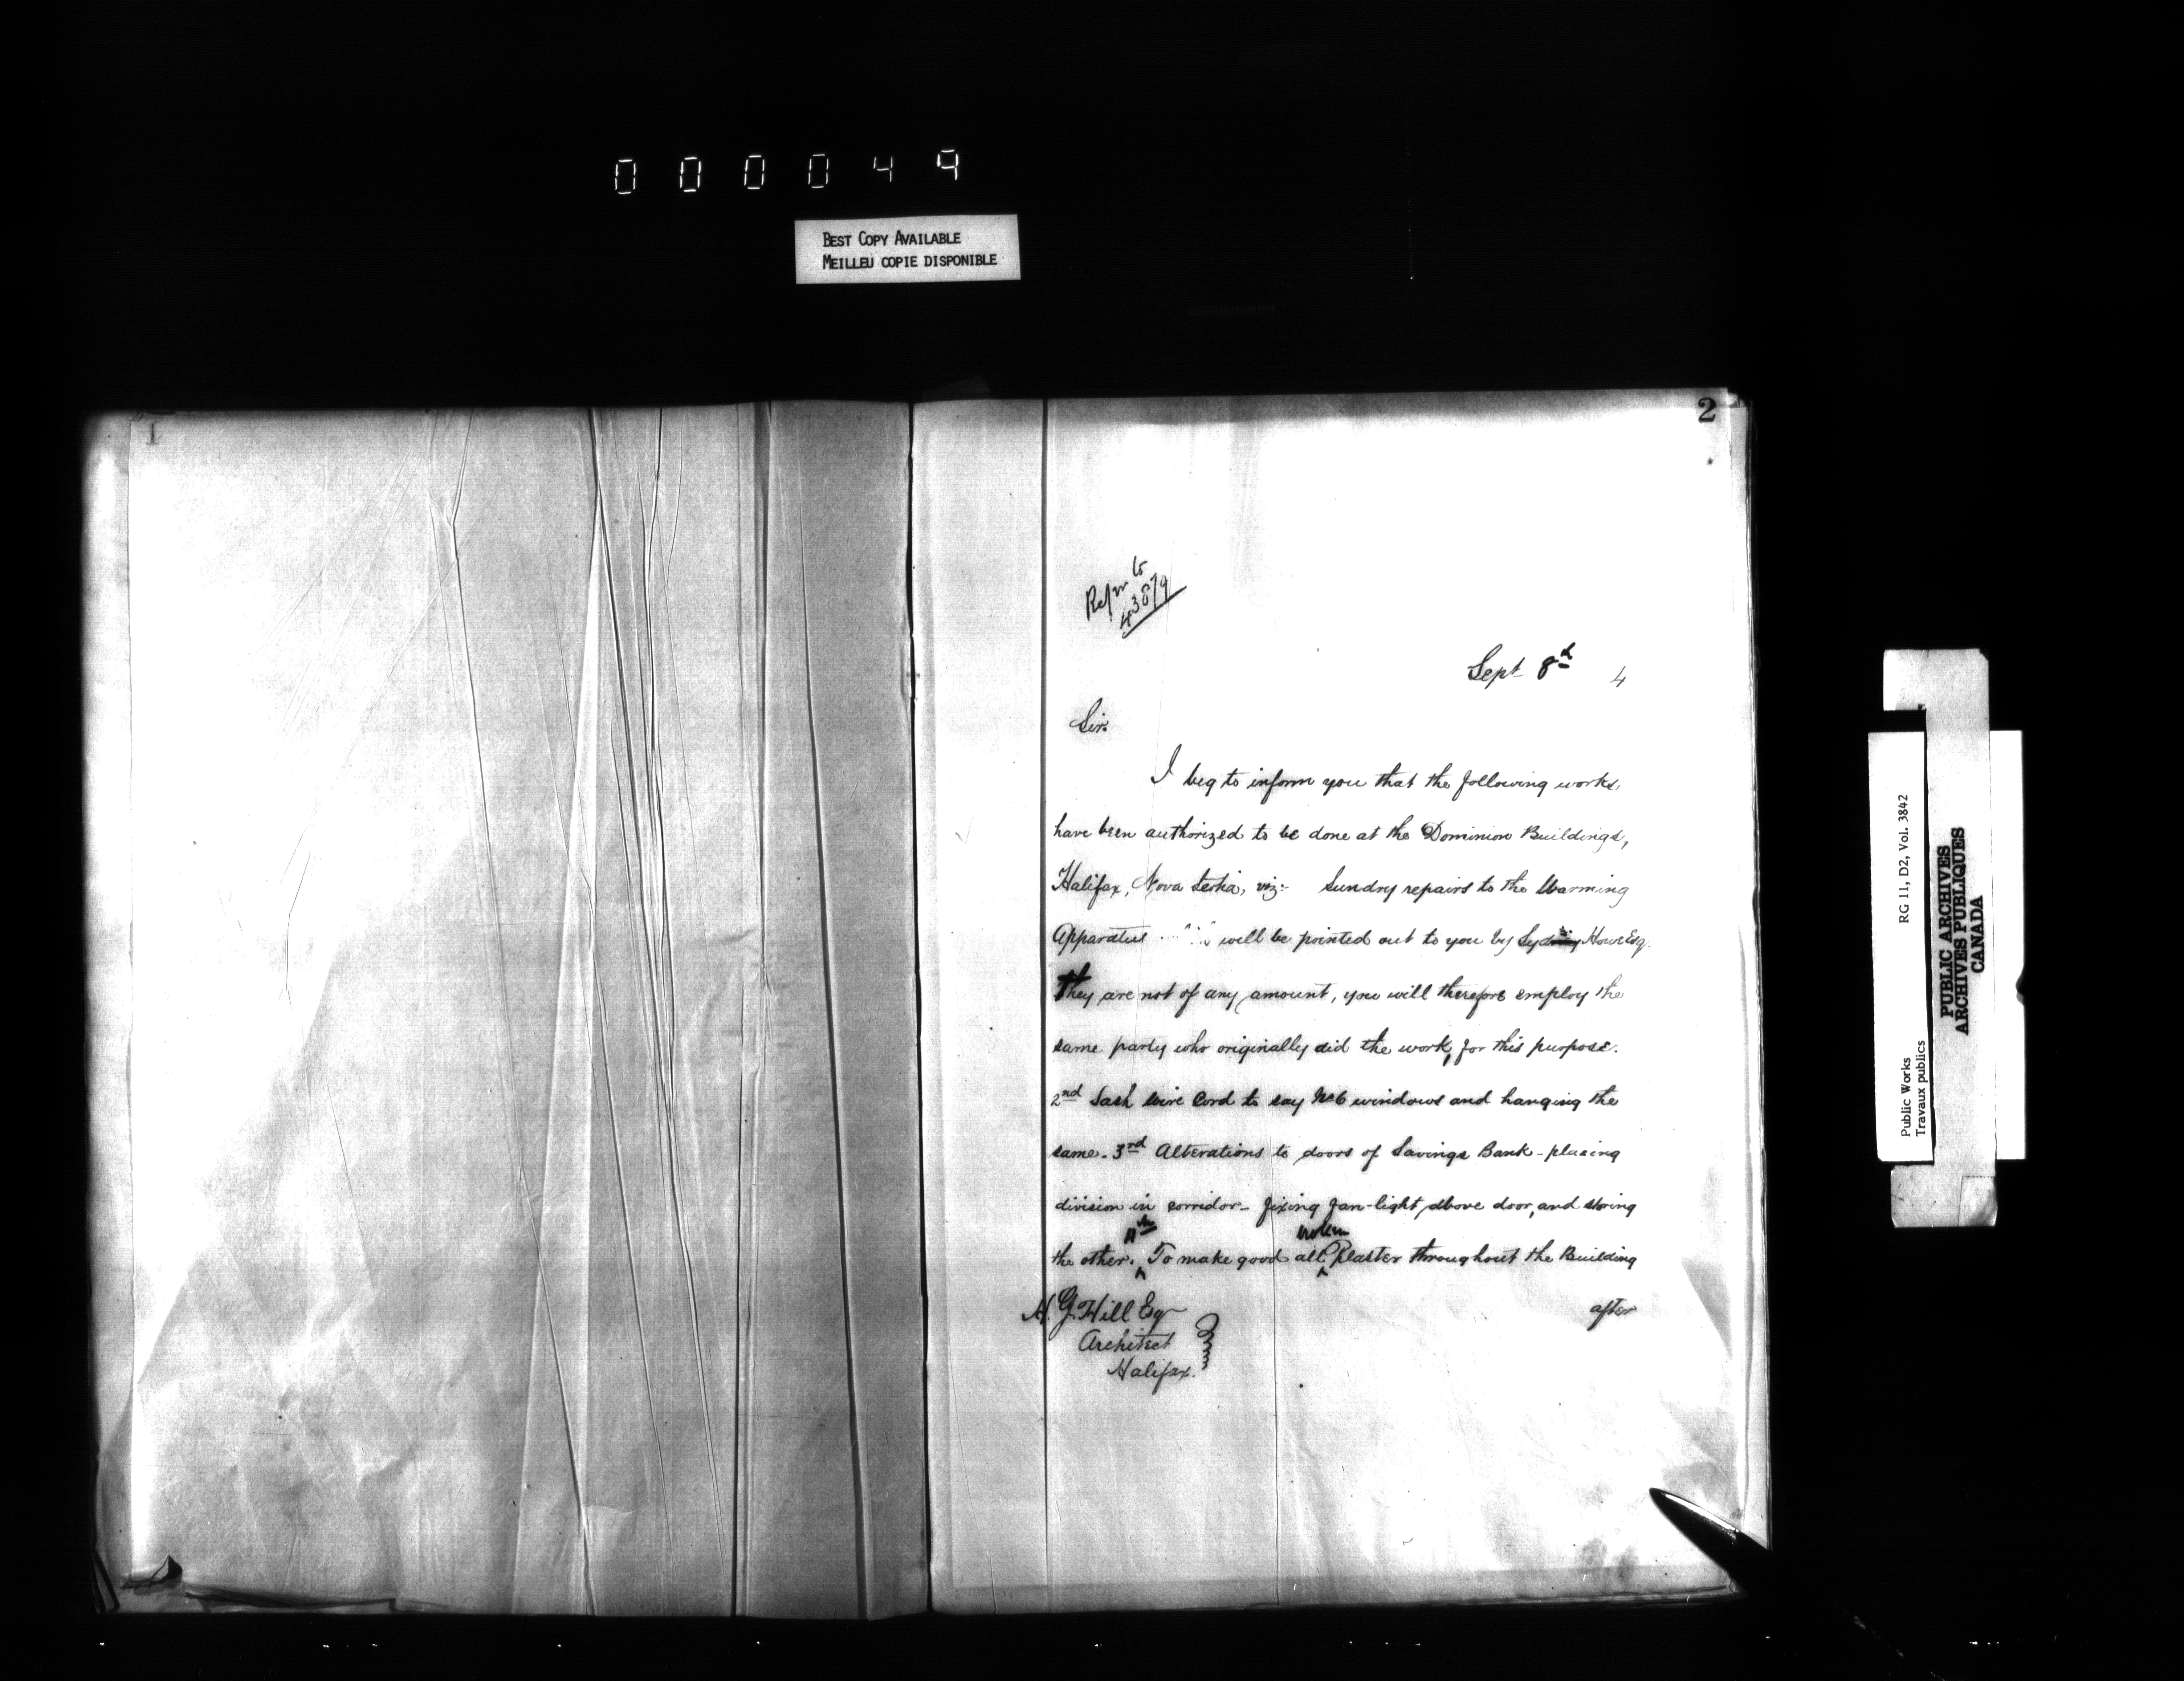 000049
BEST COPY AVAILABLE
MEILLEU COPIE DISPONIBLE
1
2
Refer to
43879
Sept 8th 4
Sir.
I beg to inform you that the following works,
have been authorized to be done at the Dominion Buildings,
Halifax, Nova Scotia, viz:- Sundry repairs to the Warming
Apparatus will be pointed out to you by Howe Esq.
They are not of any amount, you will therefore employ the
same party who originally did the work, for this purpose.
2nd Sash wire Cord to say No 6 windows and hanging the
same. 3rd Alterations to doors of Savings Bank - placing
division in corridor - fixing fan-light above door, and storing
the other. 4th To make good all broken Plaster throughout the Building
after
H. G. Hill Esq
Architect
Halifax.
Public Works RG 11, D2, Vol. 3842
Travaux publics
PUBLIC ARCHIVES
ARCHIVES PUBLIQUES
CANADA